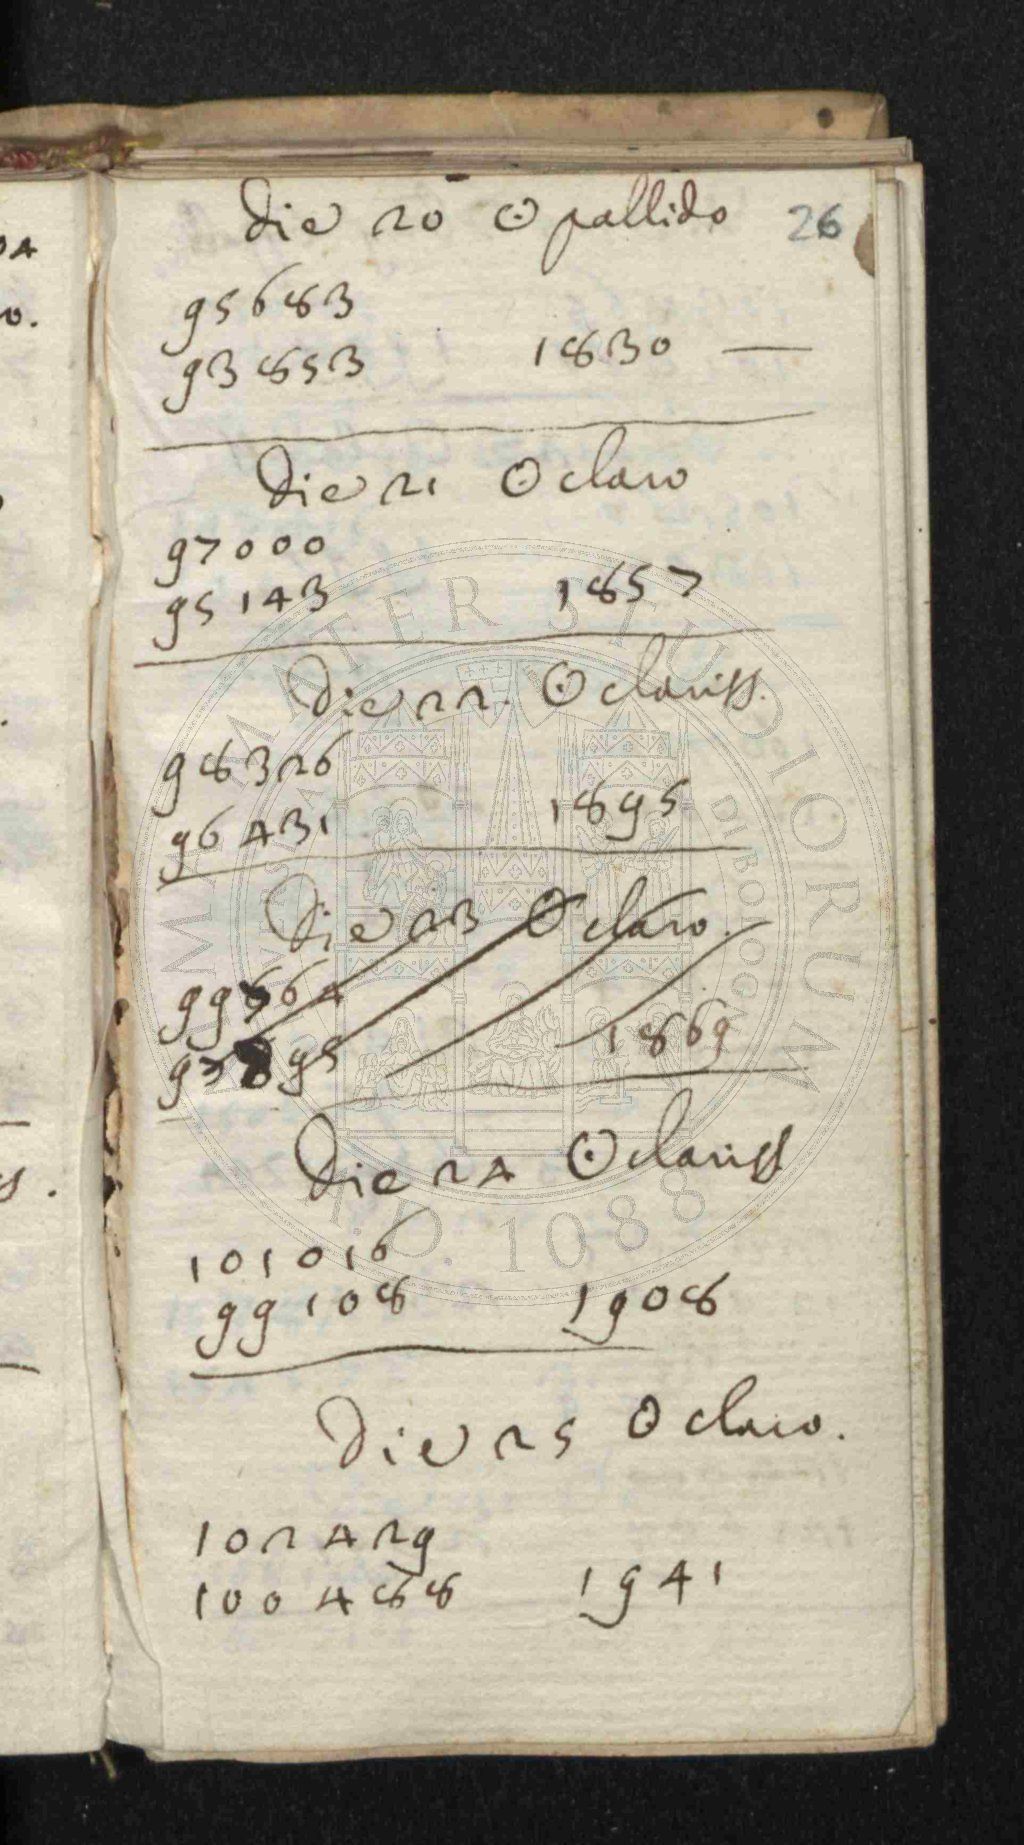 Die 20 ☉ pallido 26
95683
93853 1830 —
Die 21 ☉ claro
97000
95143 1857
Die 22. ☉ clariss.
98326
96431 1895
Die 23 ☉ claro.
99764
97895 1869
Die 24 ☉ clariss
101016
99108 1908
Die 25 ☉ claro.
102429
100488 1941
ALMA MATER STUDIORUM
A.D. 1088
UNIVERSITÀ DI BOLOGNA